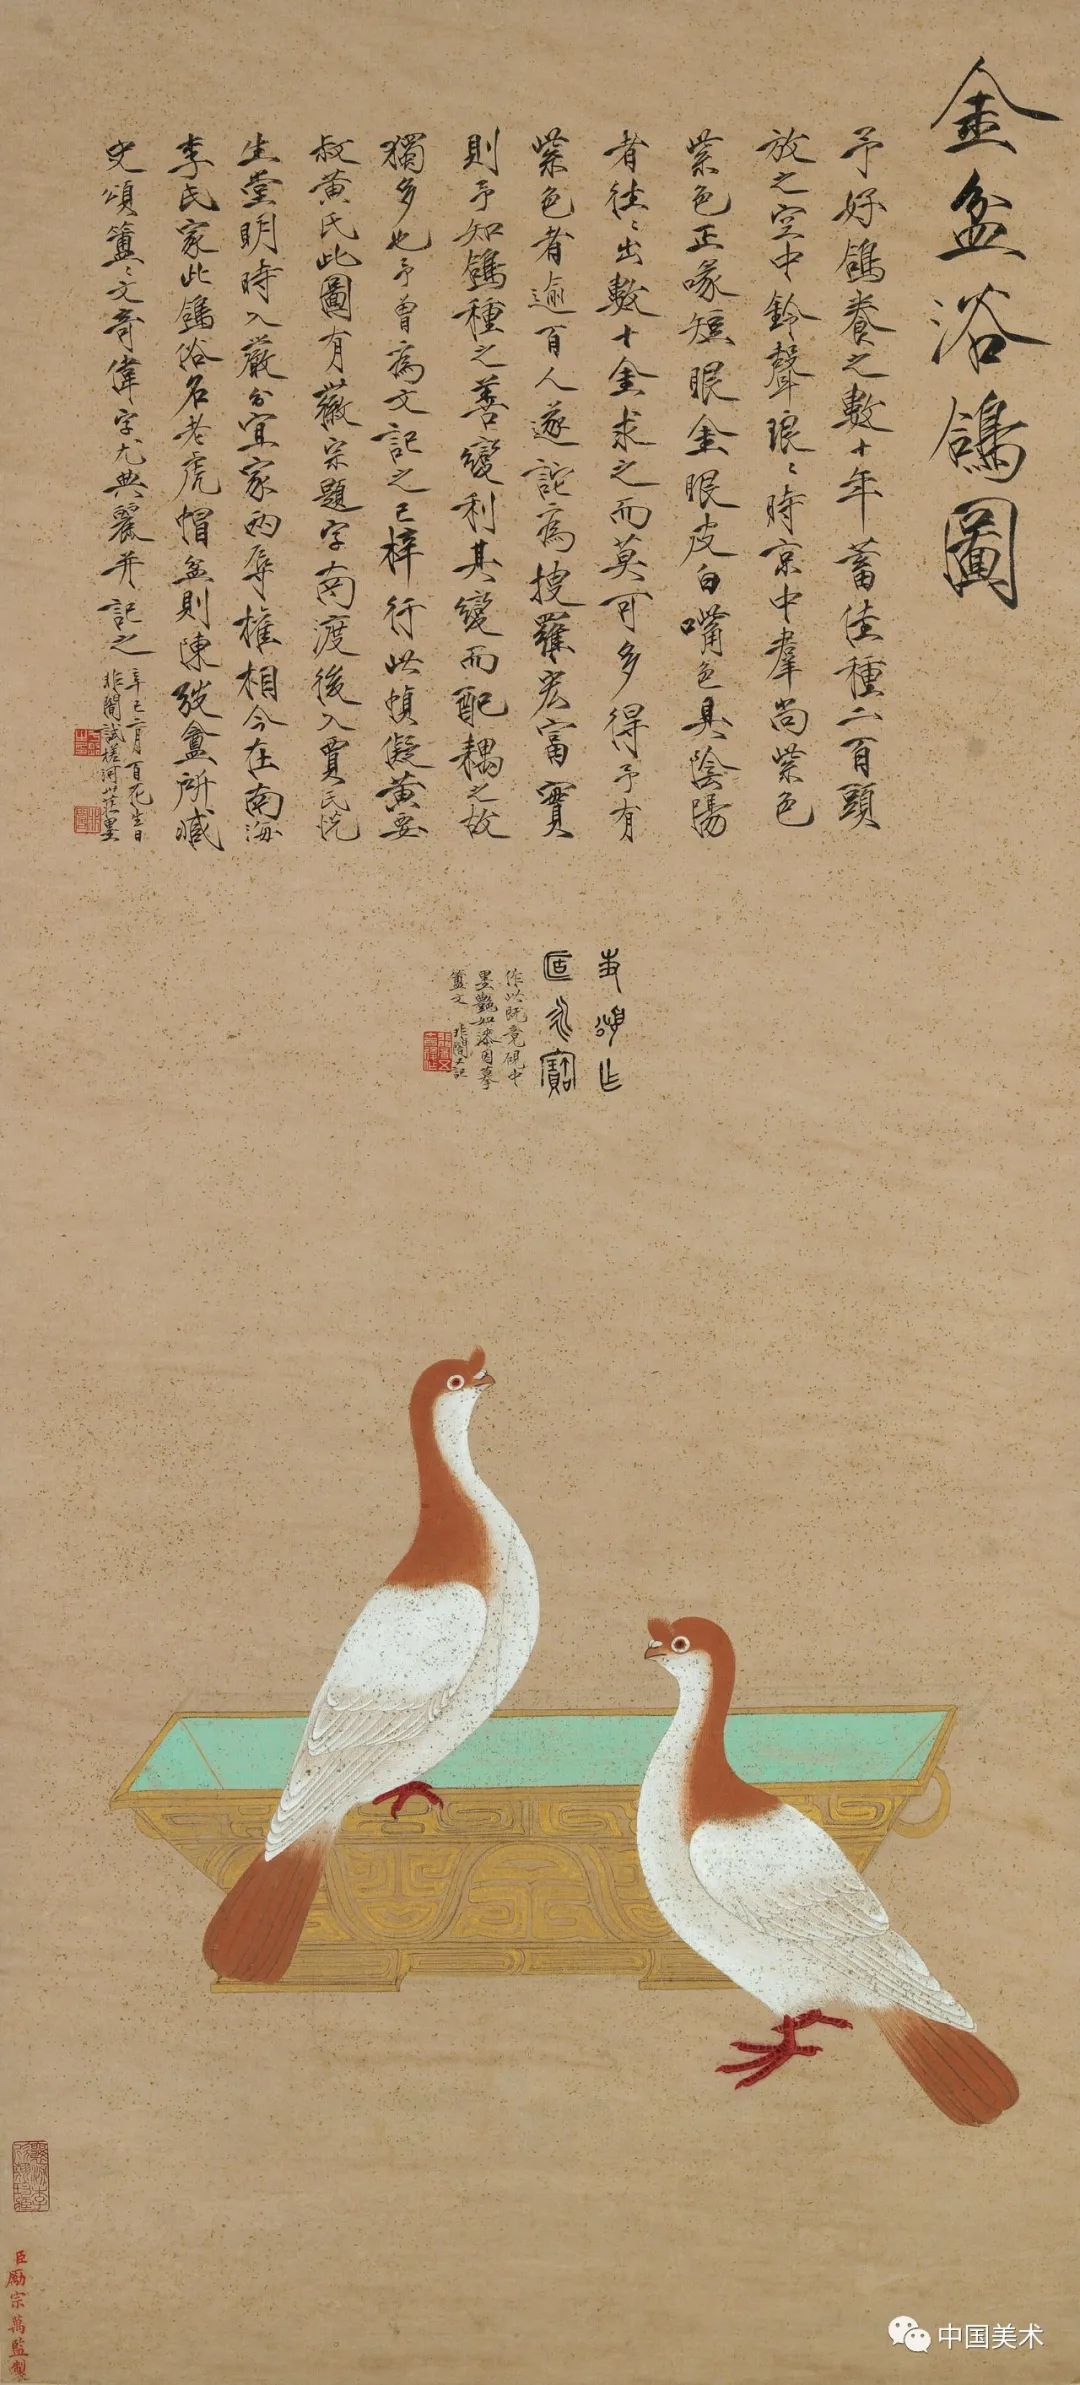 金盆浴鴿圖
予好鴿養之數十年蓄佳種二百頭
放之空中鈴聲琅〻時京中羣尚紫色
紫色正喙短眼金眼皮白嘴色具陰陽
者往〻出數十金求之而莫可多得予有
紫色者逾百人遂詫為搜羅宏富實
則予知鴿種之善變利其變而配耦之故
獨多也予曾為文記之已梓行此幀儗黃要
叔黃氏此圖有徽宗題字南渡後入賈氏悅
生堂明時入嚴分宜家兩辱權相今在南海
李氏家此鴿俗名老虎帽盆則陳㺇盦所藏
史頌簠〻文奇偉字尤典麗并記之
辛巳二月百花生日
非闇試槎河山莊墨
史頌作
匜永寶
作此既竟硯中
墨豔如漆因摹
簠文 非闇又記
臣勵宗萬監製
中国美术